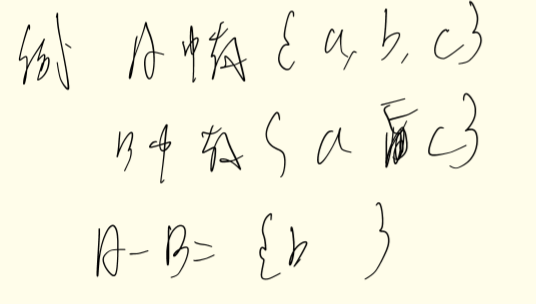 例 A中有 { a, b, c}
B中有 { a c}
A-B= {b }